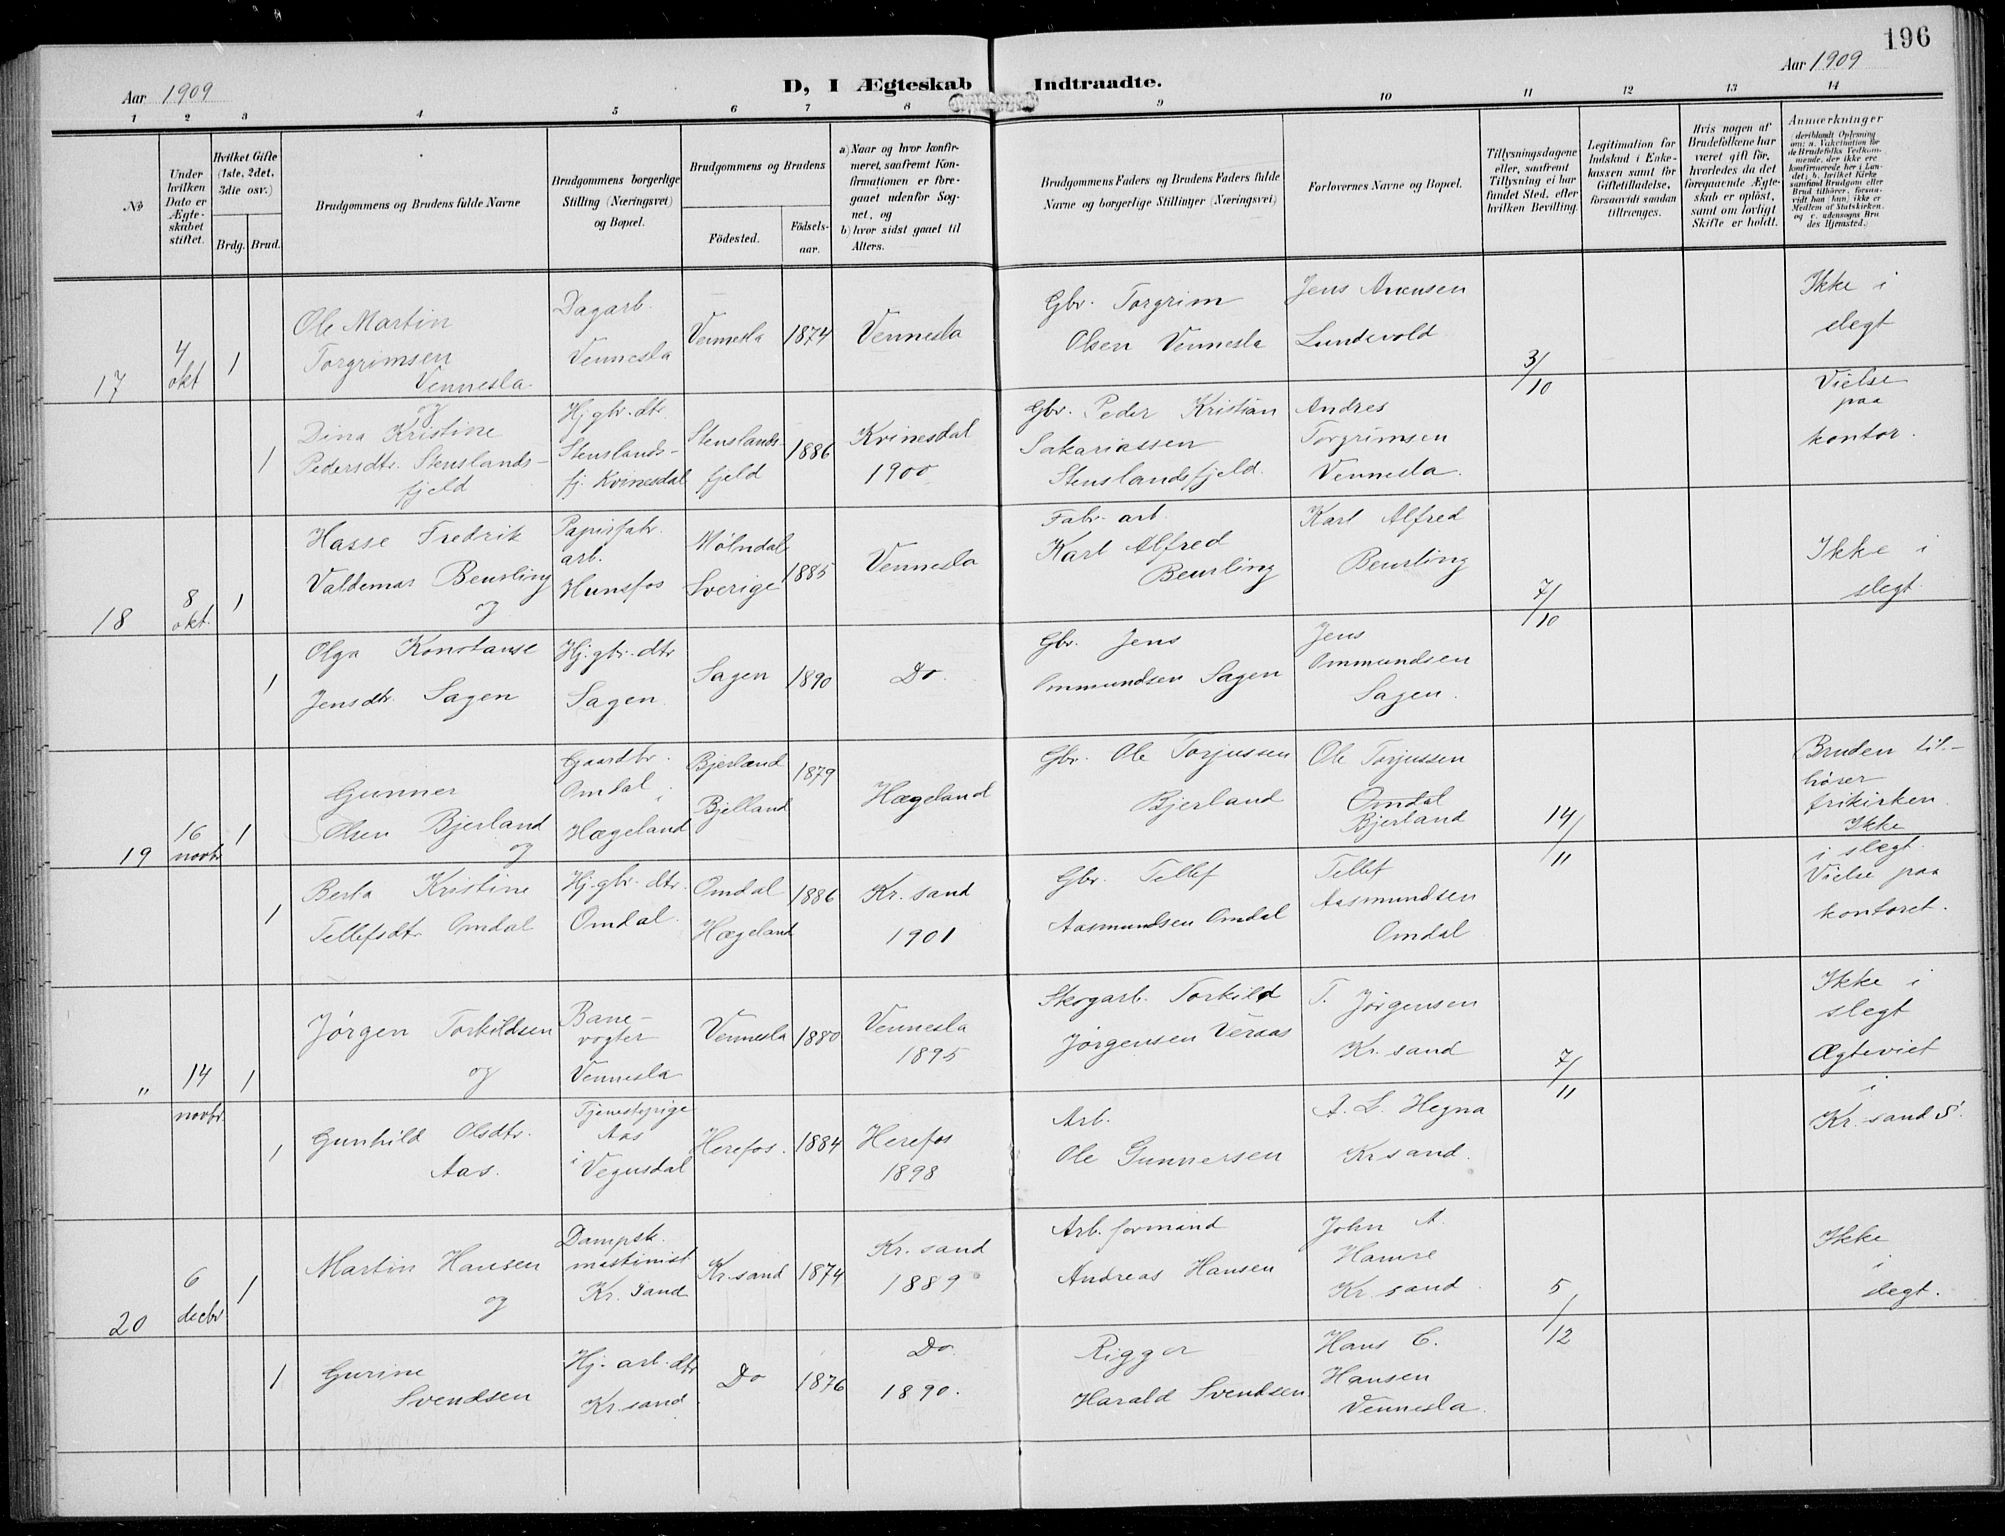 196
Aar 1909
D, I Ægteskab Indtraadte.
Aar 1909
1 2 3 4 5 6 7 8 9 10 11 12 13 14
№
Under hvilken Dato er Ægteskabet stiftet.
Hvilket Gifte (1ste, 2det, 3die osv.)
Brdg. Brud.
Brudgommens og Brudens fulde Navne
Brudgommens borgerlige Stilling (Næringsvei) og Bopæl.
Brudgommens og Brudens
Fødested.
Fødsels-aar.
a) Naar og hvor konfirmeret, saafremt Konfirmationen er foregaaet udenfor Sognet, og
b) hvor sidst gaaet til Alters.
Brudgommens Faders og Brudens Faders fulde Navne og borgerlige Stillinger (Næringsvei)
Forlovernes Navne og Bopæl.
Tillysningsdagene eller, saafremt Tillysning ei har fundet Sted, efter hvilken Bevilling.
Legitimation for Indskud i Enkekassen samt for Giftetilladelse, forsaavidt saadan tiltrænges.
Hvis nogen af Brudefolkene har været gift før, hvorledes da det foregaaende Ægteskab er opløst, samt om lovligt Skifte er holdt.
Anmærkninger
(deriblandt Oplysning om: a. Vakcination for de Brudefolks Vedkommende, der ikke ere konfirmerede her i Landet; b. hvilket Kirkesamfund Brudgom eller Brud tilhører, forsaavidt han (hun) ikke er Medlem af Statskirken, og c. udensogns Brudes Hjemsted.)
17
4 okt
1
Ole Martin
Torgrimsen
Vennesla
og
Dagarb.
Vennesla
Vennesla
1874
Vennesla
Gbr. Torgrim
Olsen Vennesla
Jens Arnensen
Lundevold
3/10
Ikke i
slegt
Vielse
paa
kontor.
1
Dina Kristine
Pedersdtr. Stenslands-
fjeld
Hj. gbr. dtr.
Stenslands-
fj. Kvinesdal
Stenslands-
fjeld
1886
Kvinesdal
1900
Gbr. Peder Kristian
Sakariassen
Stenslandsfjeld.
Andres
Torgrimsen
Vennesla.
18
8 okt.
1
Hasse Fredrik
Valdemar Beurling
og
Papirfabr.
arb.
Hunsfos
Mölndal
Sverige
1885
Vennesla
Fabr. arb.
Karl Alfred
Beurling
Karl Alfred
Beurling
7/10
Ikke i
slegt.
1
Olga Konstanse
Jensdtr. Sagen
Hj. gbr. dtr
Sagen.
Sagen
1890
Do.
Gbr. Jens
Ommundsen Sagen
Jens
Ommundsen
Sagen.
19
16 novbr
1
Gunner
Olsen Bjerland
og
Gaardbr.
Omdal i
Hægeland
Bjerland
Bjelland
1879
Hægeland
Gbr. Ole Torjussen
Bjerland
Ole Torjussen
Omdal
Bjerland
14/11
Bruden til-
hører
frikirken.
Ikke
i slegt.
Vielse paa
kontoret.
1
Berta Kristine
Tellefsdtr Omdal
Hj. gbr. dtr.
Omdal.
Omdal
Hægeland
1886
Kr. sand
1901
Gbr. Tellef
Aasmundsen Omdal
Tellef
Aasmundsen
Omdal
"
14 novbr.
1
Jørgen Torkildsen
og
Bane-
vogter
Vennesla
Vennesla
1880
Vennesla
1895
Skogarb. Torkild
Jørgensen Veraas
T. Jørgensen
Kr. sand
7/11
Ikke i
slegt
Ægteviet
i
Kr. sand S.
1
Gunhild Olsdtr.
Aas.
Tjenestepige
Aas
i Vegusdal
Herefos.
1884
Herefos
1898
Arb.
Ole Gunnersen
A. L. Hegna
Kr sand.
20
6 decbr
1
Martin Hansen
og
Dampsk.
maskinist
Kr. sand
Kr. sand
1874
Kr. sand
1889
Arb. formand
Andreas Hansen
John A.
Hamre
Kr. sand.
5/12
Ikke
i
slegt.
1
Gurine
Svendsen
Hj. arb. dtr
Kr. sand.
Do
1876
Do.
1890.
Rigger
Harald Svendsen
Hans C.
Hansen
Vennesla.